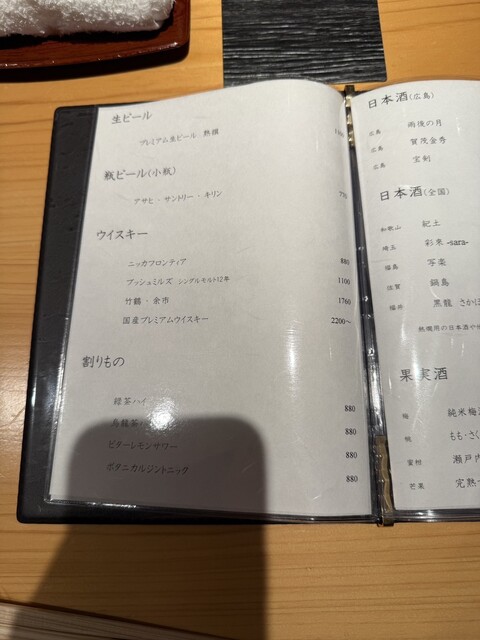 生ビール
プレミアム生ビール 熟撰
瓶ビール(小瓶)
アサヒ・サントリー・キリン 770
ウイスキー
ニッカフロンティア 880
ブッシュミルズ シングルモルト12年 1100
竹鶴・余市 1760
国産プレミアムウイスキー 2200～
割りもの
緑茶ハイ 880
烏龍茶 880
ビターレモンサワー 880
ボタニカルジントニック 880
日本酒(広島)
広島 雨後の月
広島 賀茂金秀
広島 宝剣
日本酒(全国)
和歌山 紀土
埼玉 彩來 -sara-
福島 写楽
佐賀 鍋島
福井 黒龍 さかほ
熱燗用の日本酒や
果実酒
梅 純米梅
桃 もも・さく
蜜柑 瀬戸内
芒果 完熟